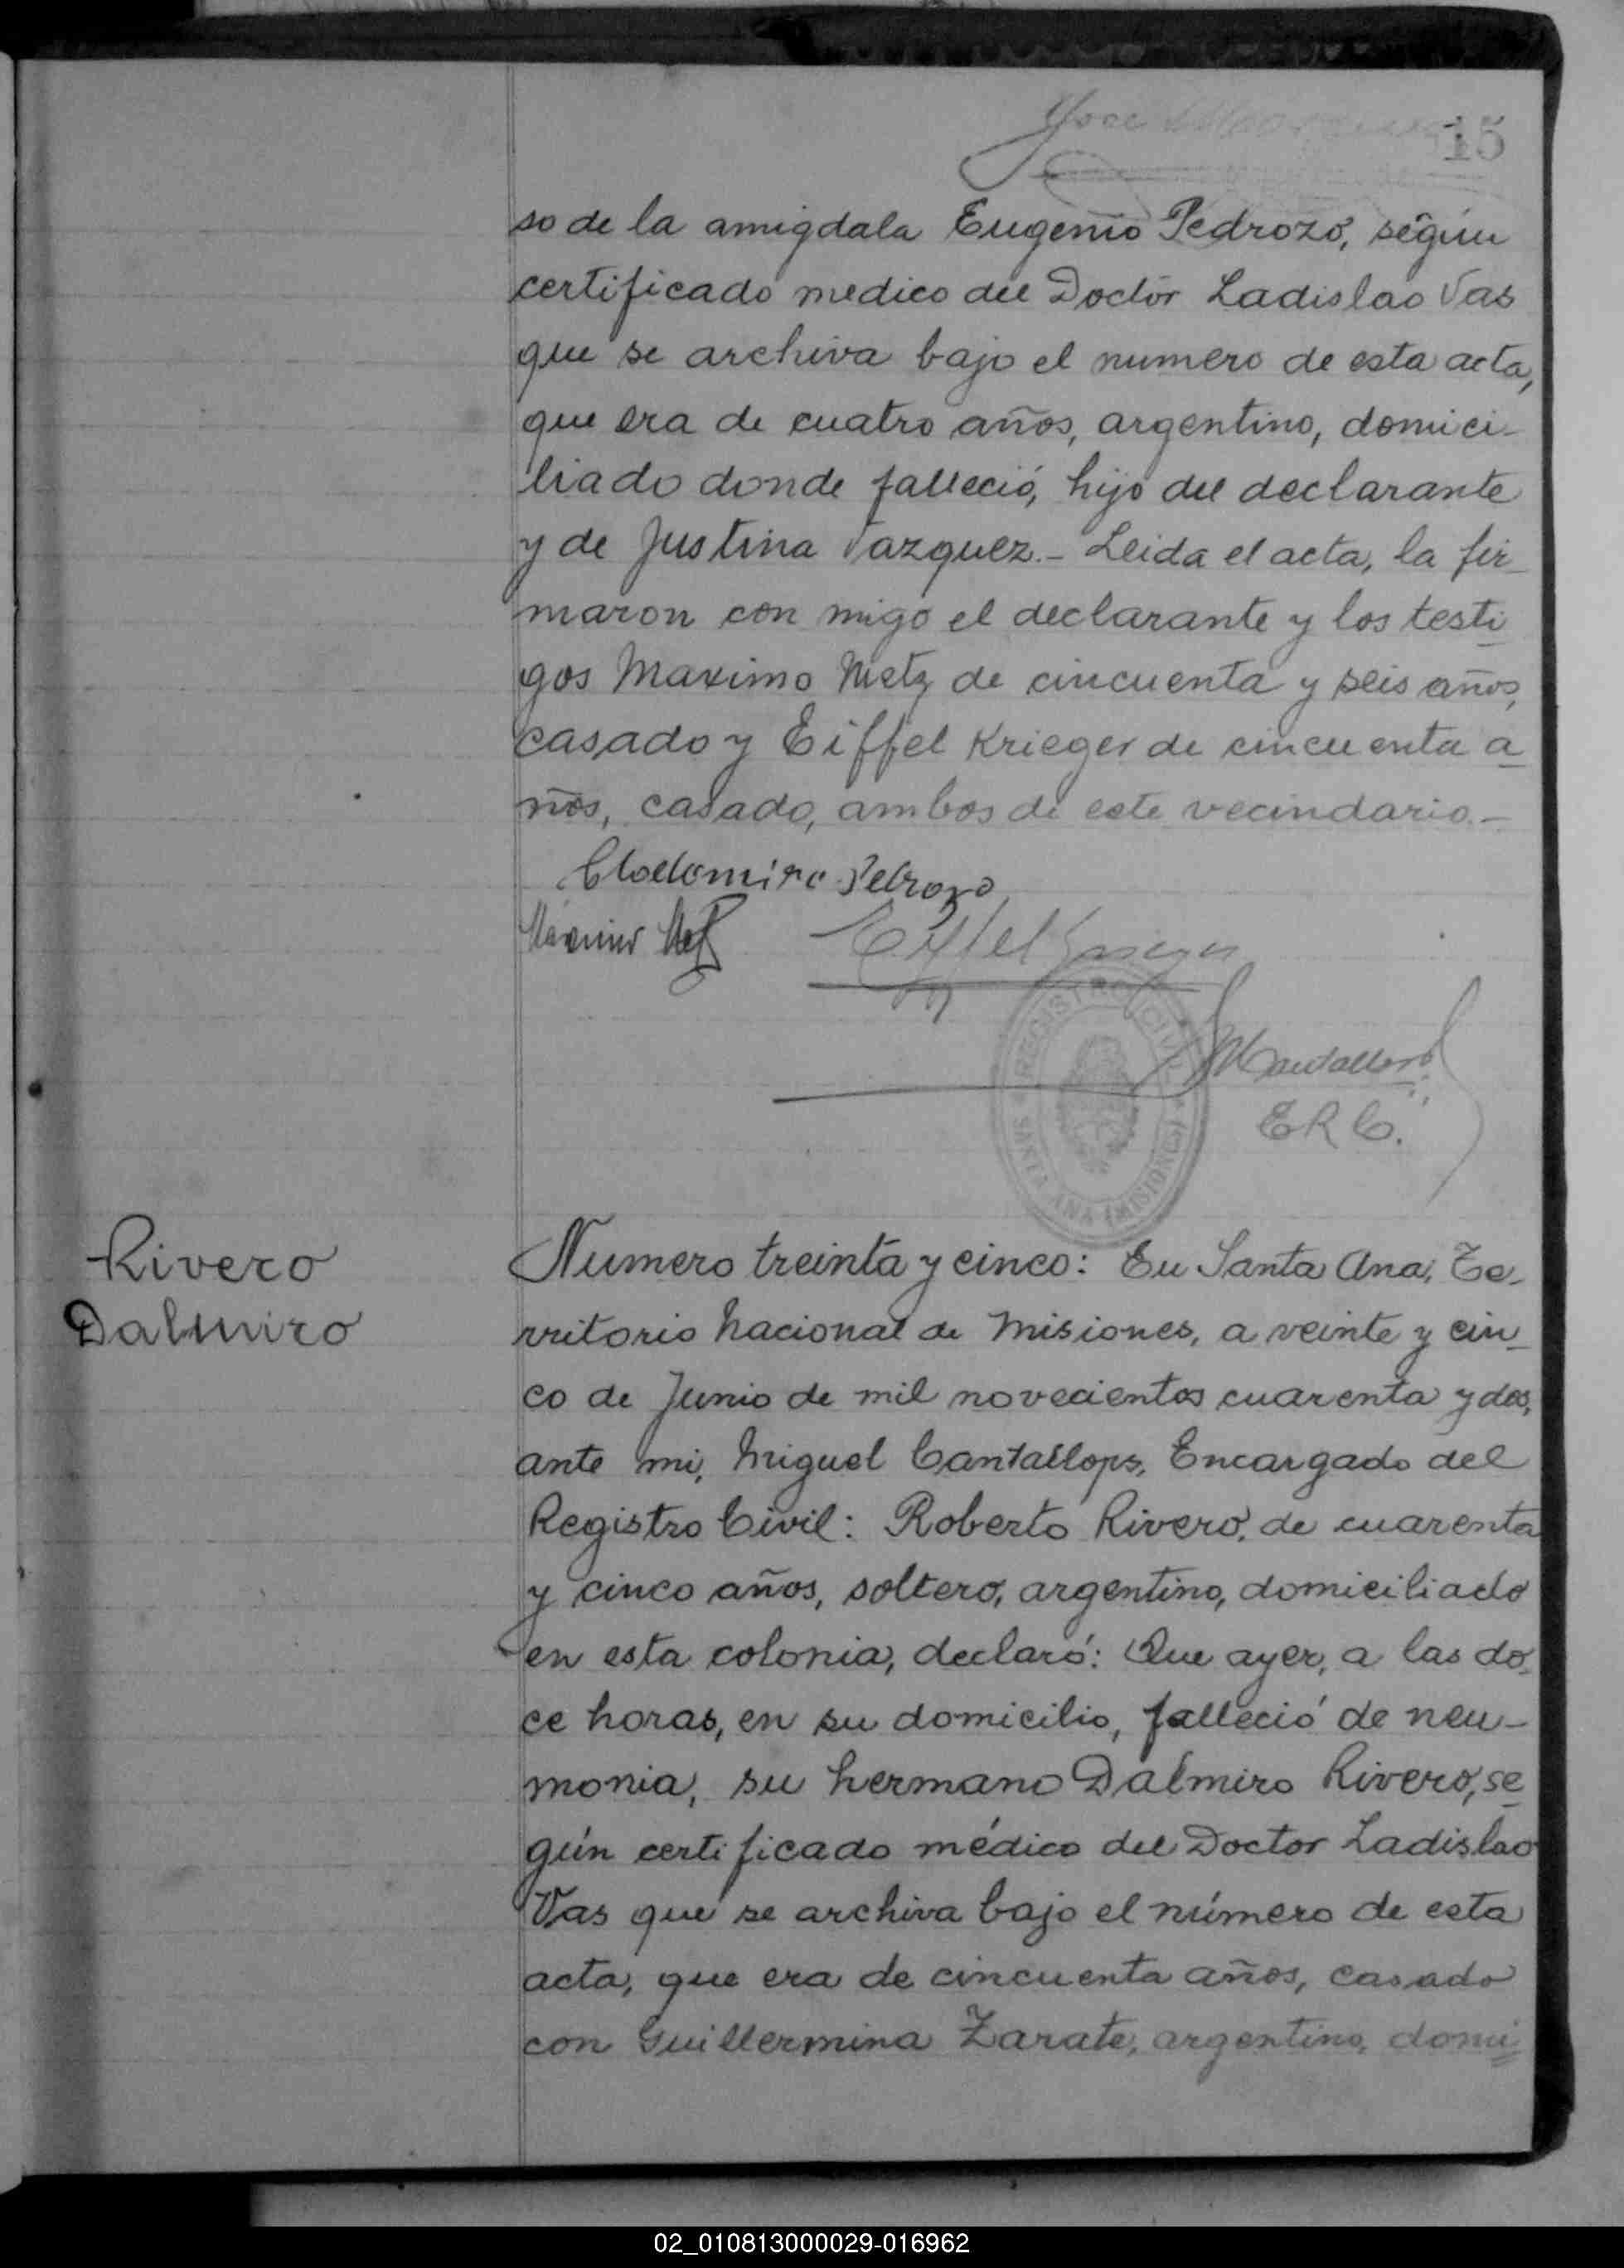 Jose
15
so de la amigdala Eugenio Pedrozo, según
certificado medico del Doctor Ladislao Vas
que se archiva bajo el numero de esta acta,
que era de cuatro años, argentino, domici-
liado donde falleció, hijo del declarante
y de Justina Vazquez.- Leida el acta, la fir-
maron con migo el declarante y los testi
gos Maximo Metz de cincuenta y seis años,
casado y Eiffel Krieger de cincuenta a
ños, casado, ambos de este vecindario.-
Clodomiro Pedrozo
Maximo Metz Eiffel Krieger
REGISTRO CIVIL
SANTA ANA (MISIONES)
MCantallops
E R C.
Rivero
Dalmiro
Numero treinta y cinco: En Santa Ana, Te-
rritorio Nacional de Misiones, a veinte y cin
co de Junio de mil novecientos cuarenta y dos,
ante mi, Miguel Cantallops, Encargado del
Registro Civil: Roberto Rivero, de cuarenta
y cinco años, soltero, argentino, domiciliado
en esta colonia, declaró: Que ayer, a las do
ce horas, en su domicilio, falleció de neu-
monia, su hermano Dalmiro Rivero, se
gún certificado médico del Doctor Ladislao
Vas que se archiva bajo el número de esta
acta, que era de cincuenta años, casado
con Guillermina Zarate, argentino, domi
02_010813000029-016962